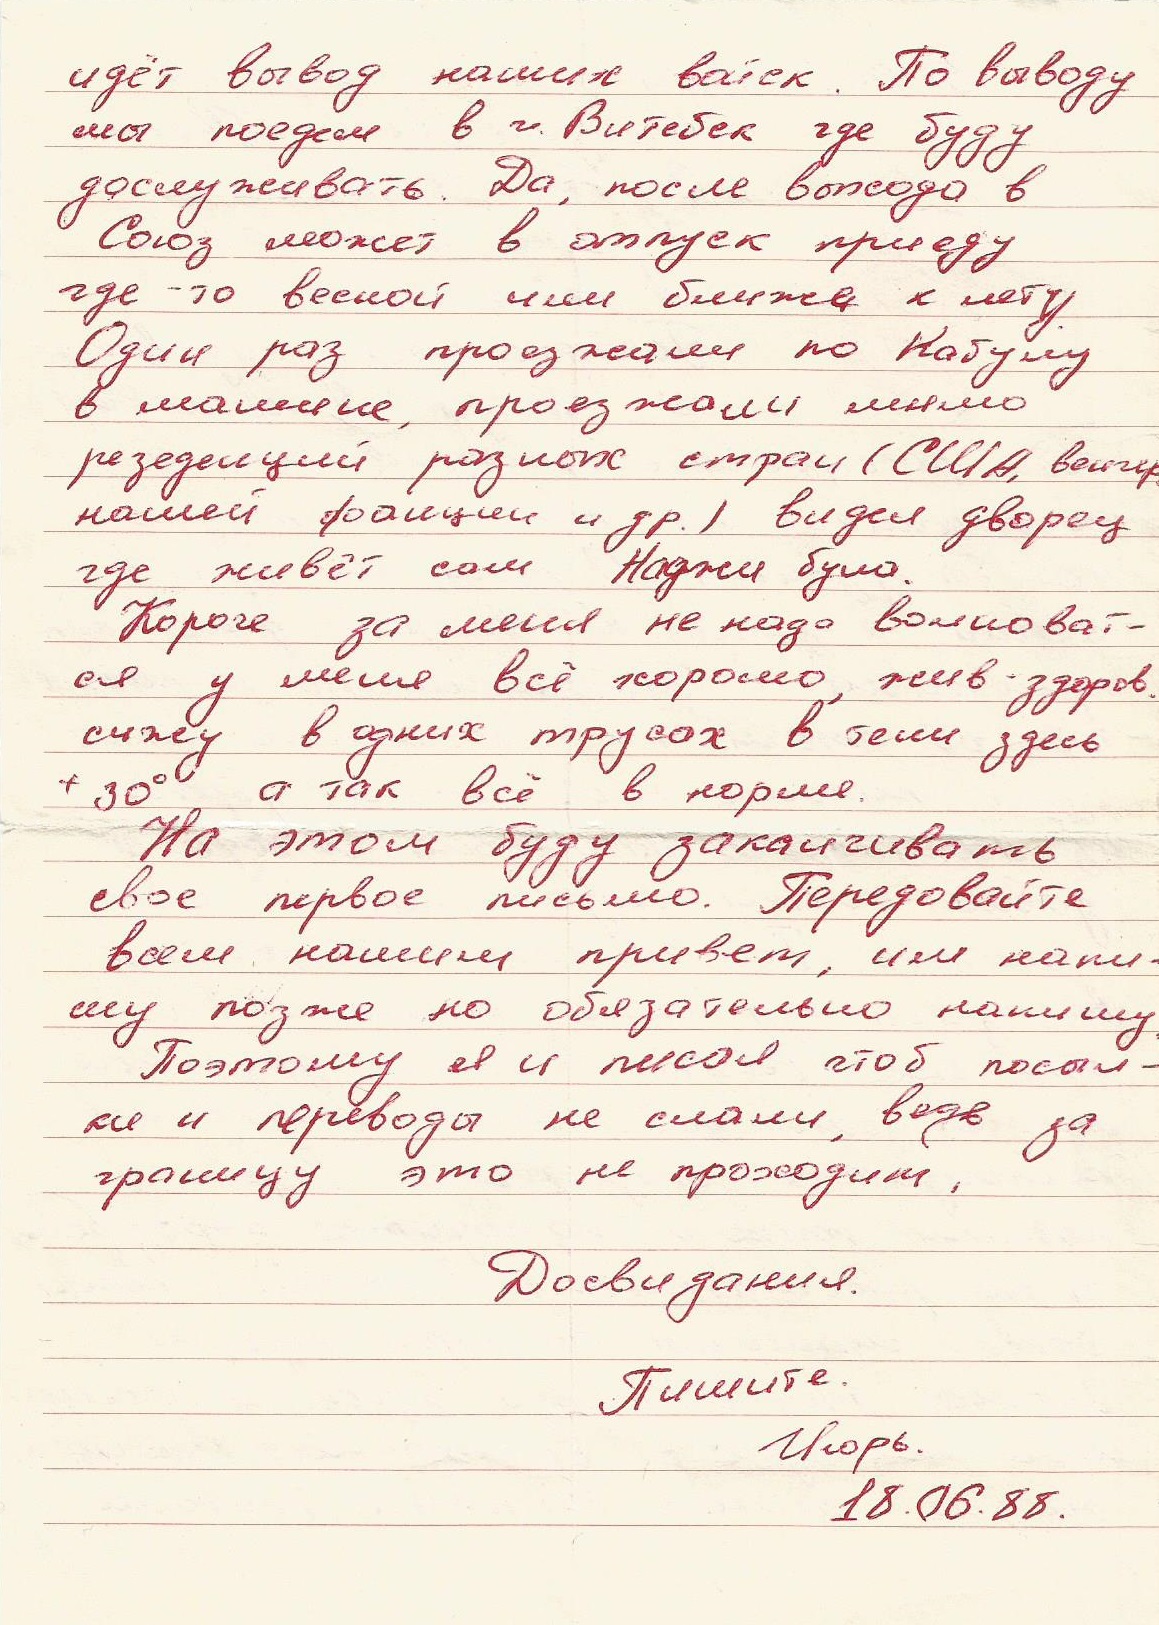 идёт вывод наших войск. По выводу
мы поедем в г. Витебск где буду
дослуживать. Да, после выхода в
Союз может в отпуск приеду
где-то весной или ближе к лету.
Один раз проезжали по Кабулу
в машине, проезжали мимо
резеденций разных стран (США, венгер,
нашей франции и др.) видел дворец
где живёт сам Наджи була.
Короче за меня не надо волноват-
ся у меня всё хорошо, жив-здоров.
сижу в одних трусах в тени здесь
+30° а так всё в норме.
На этом буду заканчивать
свое первое письмо. Передовайте
всем нашим привет, им напи-
шу позже но обязательно напишу.
Поэтому я и писал чтоб посыл-
ки и переводы не слали, ведь за
границу это не проходит.
Досвидания.
Пишите.
Игорь.
18.06.88.